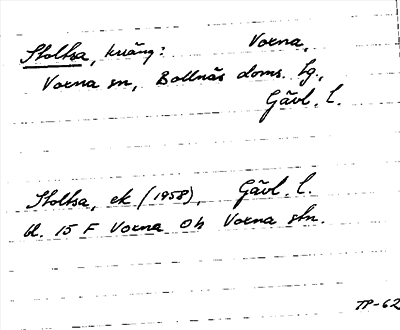 Stoltsa, kräng: Voxna,
Voxna sn, Bollnäs doms. tg.,
Gävl. l.
Stoltsa, ek (1958), Gävl. l.
bl. 15 F Voxna Oh Voxna stn.
TP-62